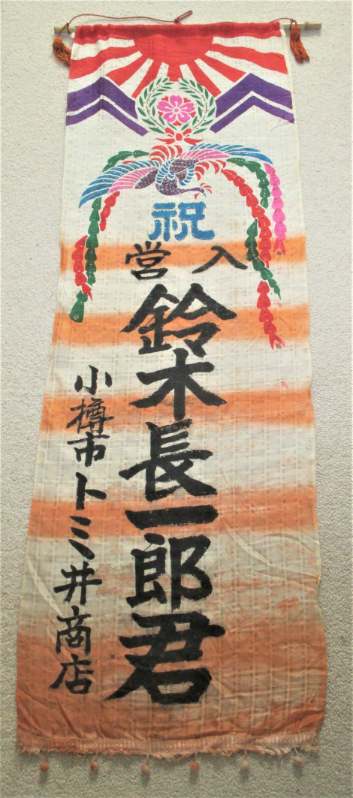 祝
入営
鈴木長一郎君
小樽市トミ井商店